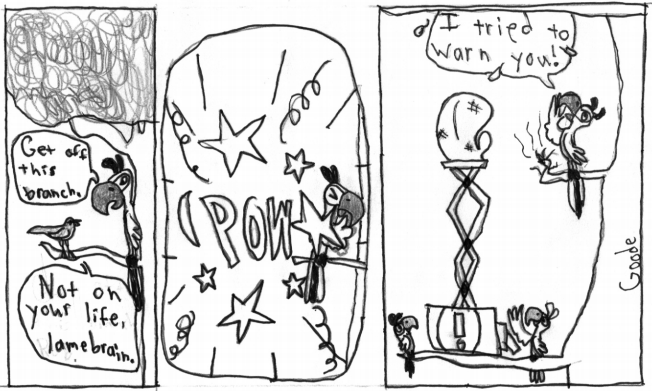 Get off
this
branch.
Not on
your life,
lamebrain.
POW
I tried to
warn you!
Goode